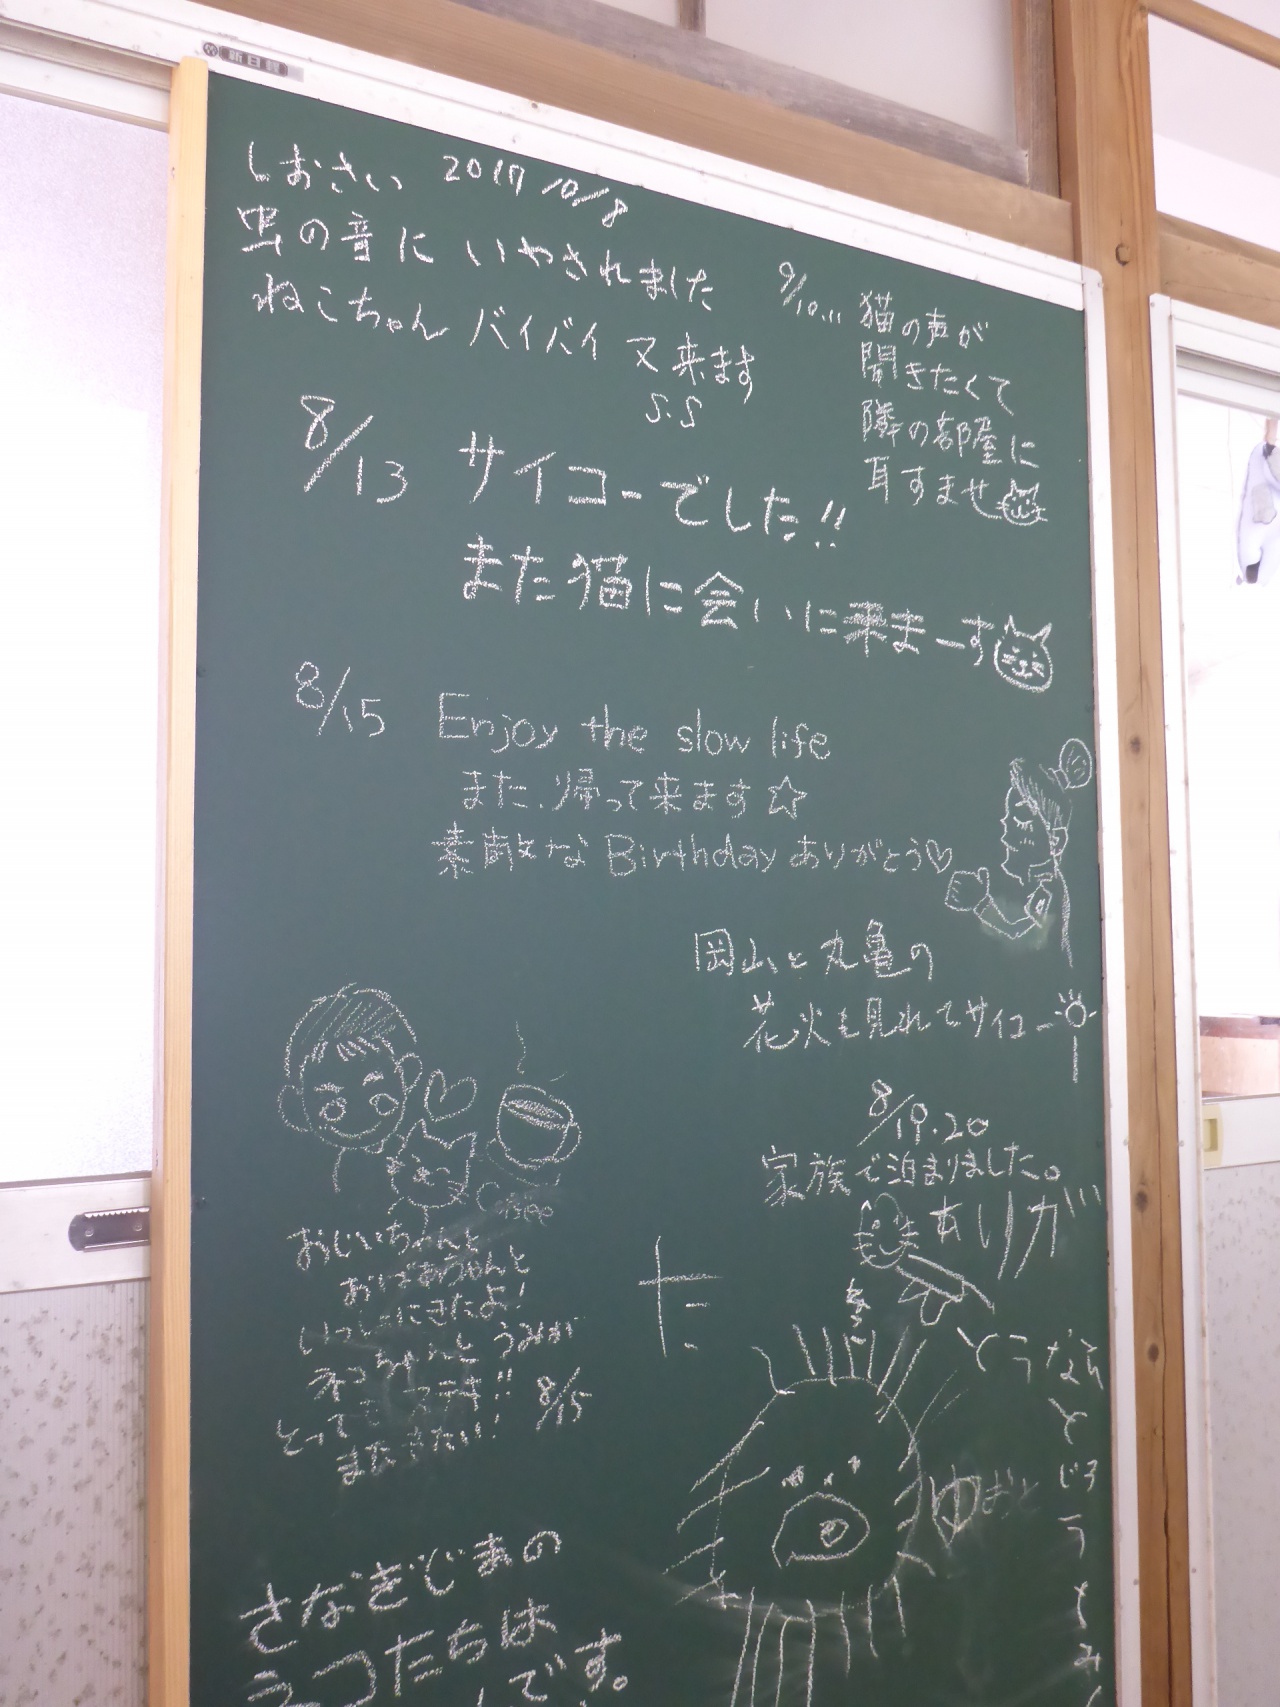 新日軽
しおさい 2017 10/8
虫の音に いやされました
ねこちゃん バイバイ 又来ます
S.S
9/10..11 猫の声が
聞きたくて
隣の部屋に
耳すませ
8/13 サイコーでした!!
また猫に会いに来まーす
8/15 Enjoy the slow life
また、帰って来ます☆
素敵な Birthday ありがとう♡
岡山と丸亀の
花火も見れてサイコー
8/19.20
家族で泊まりました。
ありが
とう
Coffee
おじいちゃんと
おばあちゃんと
いっしょにきたよ!
ネコちゃんと うみが
とってもステキ!! 8/15
またきたい!!
さなぎじまの
たちは
です。